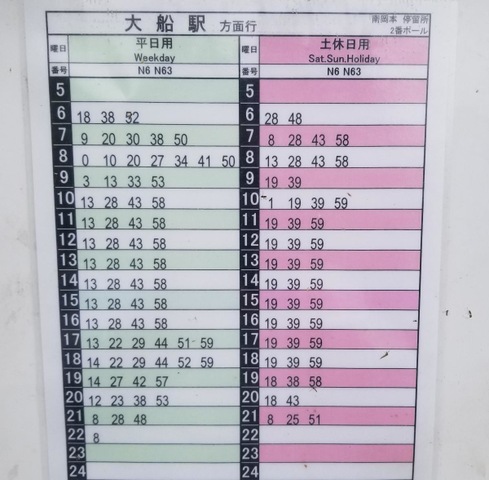 大船駅 方面行
南岡本 停留所
2番ポール
曜日 平日用 Weekday 曜日 土休日用 Sat.Sun.Holiday
番号 N6 N63 番号 N6 N63
5 5
6 18 38 52 6 28 48
7 9 20 30 38 50 7 8 28 43 58
8 0 10 20 27 34 41 50 8 13 28 43 58
9 3 13 33 53 9 19 39
10 13 28 43 58 10 1 19 39 59
11 13 28 43 58 11 19 39 59
12 13 28 43 58 12 19 39 59
13 13 28 43 58 13 19 39 59
14 13 28 43 58 14 19 39 59
15 13 28 43 58 15 19 39 59
16 13 28 43 58 16 19 39 59
17 13 22 29 44 51 59 17 19 39 59
18 14 22 29 44 52 59 18 19 39 59
19 14 27 42 57 19 18 38 58
20 12 23 38 53 20 18 43
21 8 28 48 21 8 25 51
22 8 22
23 23
24 24